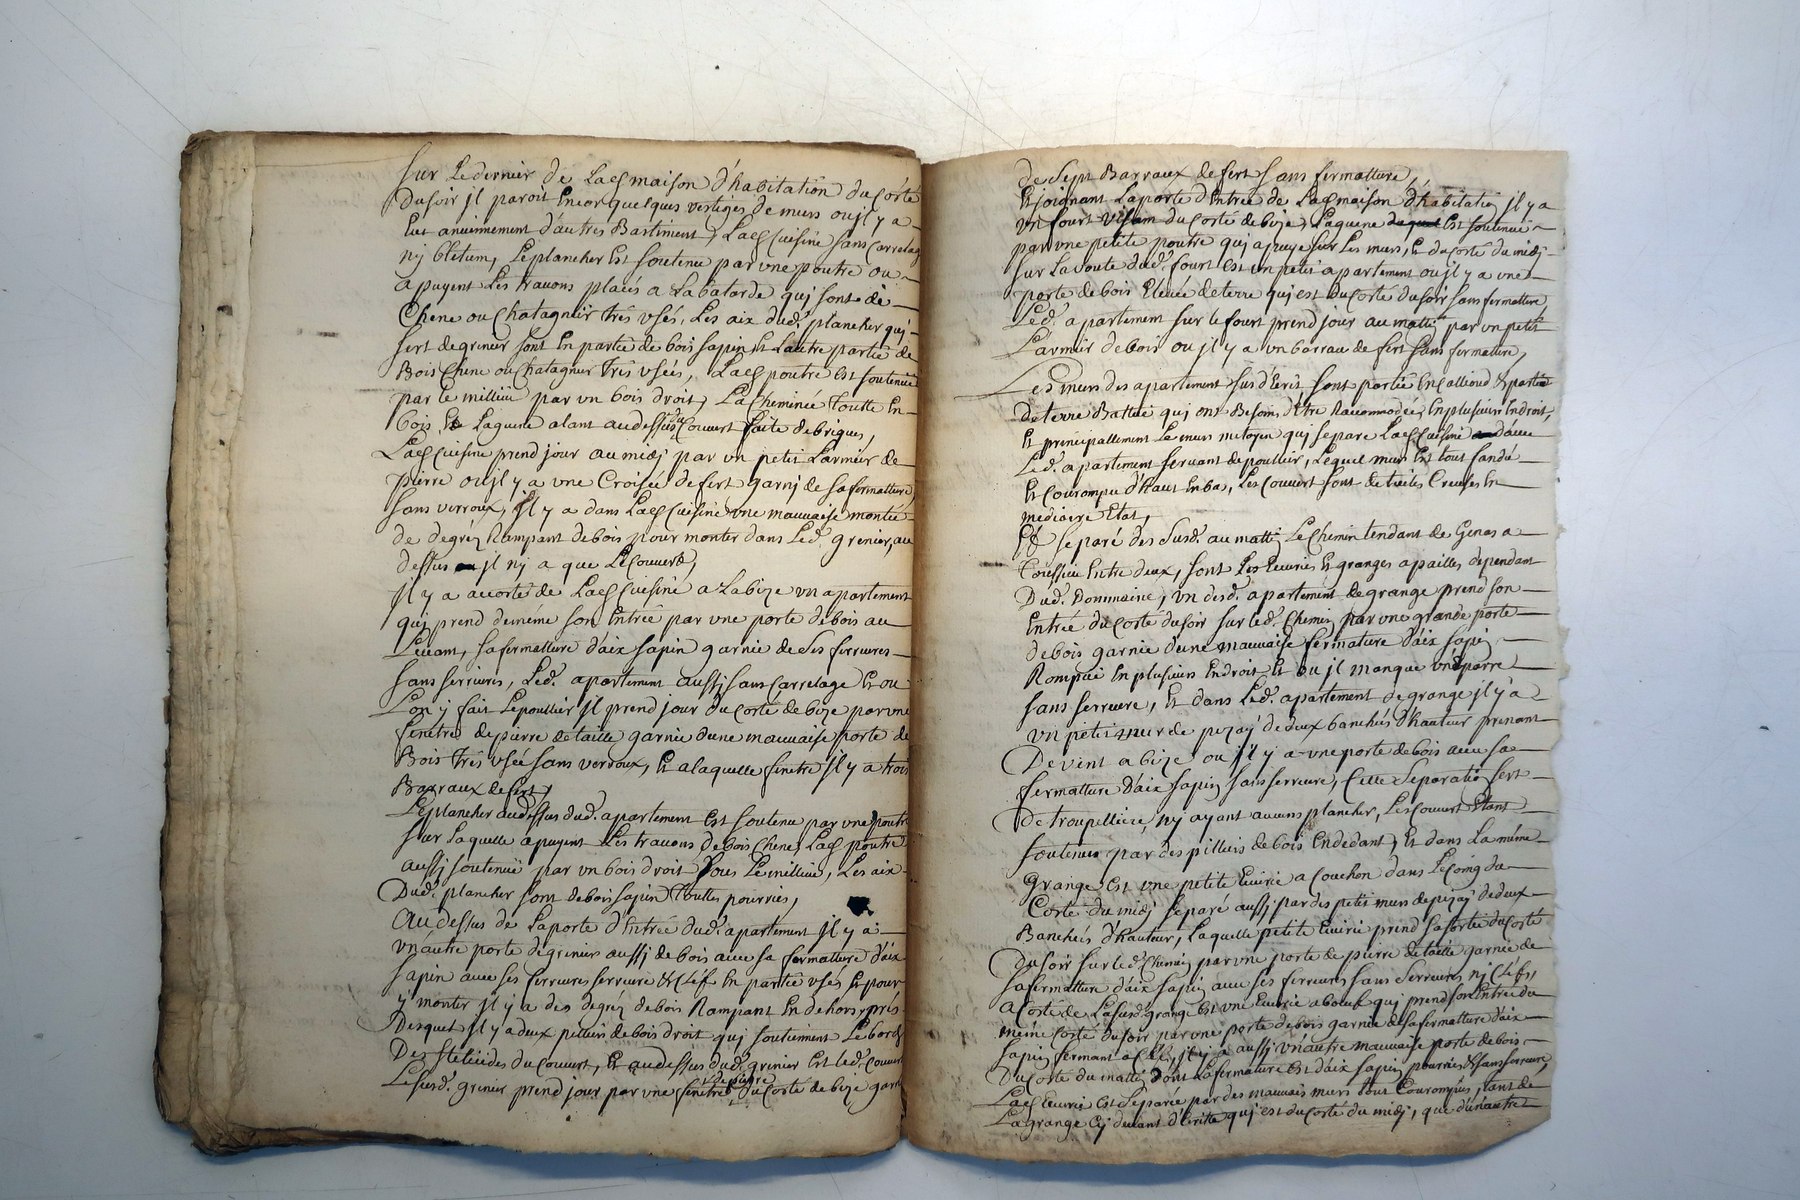 Sur Le dernier de Lad maison d'habitation du Corté
Du soir il paroit Encor quelques vestiges de murs ou il y a
Eut anciennement d'autres Bastiment, Lad Cuisine sans Carrelag
ny bletum, Le plancher Est soutenue par une poutre ou
apuyent Les travons placés a La batarde quj sont de
Chene ou Chatagnier très usés, Les aix dud. plancher quj
sert de grenier sont En partie de bois sapin Et L'autre partie de
Bois Chene ou Chatagnier très usés, Lad poutre est soutenue
par le millieu par un bois droit, La Cheminée toutte En
bois, Et Laquelle alant au dessus du Couvert faite de briques,
Lad Cuisine prend jour au midj par un petit Larmier de
pierre ou il y a une Croisée de fert garnj de sa fermatture
sans verroux, Il y a dans Lad Cuisine une mauvaise montée
de degréz Rampant de bois pour monter dans Led. grenier, au
dessus il ny a que Le Couvert,
Il y a accorté de Lad Cuisine a La bize un apartement
quj prend de même son Entrée par une porte de bois au
Levant, sa fermatture d'aix sapin garnie de Ses ferrures
sans serrures, Led. apartement aussj sans Carrelage Et ou
L'on y fait Le poullier Il prend jour du Corté de bize par une
fenêtre de pierre de taille garnie d'une mauvaise porte de
Bois très usée sans verroux, Et a laquelle fenêtre Il y a trois
Barraux de fert,
Le plancher au dessus dud. apartement est soutenue par une poutre
sur Laquelle apuyent Les travons de bois Chene, Lad poutre
aussj soutenüe par un bois droit Sous Le millieu, Les aix
Dud. plancher sont de bois sapin touttes pourries,
Au dessus de La porte d'Entrée dud. apartement Il y a
un autre porte de grenier aussj de bois avec sa fermatture d'aix
sapin avec ses ferrures serrure & Clef En partie usés Et pour
y monter il y a des degréz de bois Rampant En dehors, prés
Desquel Il y a deux pilliers de bois droit quj soutiennent Le bord
Des du Couvert, Et au dessus dud. grenier Est Led. Couvert
Le susd. grenier prend jour par une fenêtre de pierre Du Corté de bize garnie
de Sept Barraux de fert sans fermatture,
Et joignant La porte d'Entrée de Lad maison d'habitatio il y a
un fourt du Corté de bize, est soutenüe
par une petite poutre quj apuye sur Les murs, Et du Corté du midj
sur La voute dud. fourt est un petit apartement ou il y a une
porte de bois Elevée de terre quj est du Corté du soir sans fermatture
Led. apartement sur le fourt prend jour au mattin par un petit
Larmier de bois ou il y a un barrau de fert sans fermatture,
Les murs des apartement sus d'Ecrit sont partie En callioud & partie
de terre Battue quj ont Besoin d'Etre Racommodés En plusieurs Endroit,
Et principallement Le mur mitoyen quj separe Lad Cuisine d'avec
Led. apartement servant de poullier, Lequel mur Est tout fandu
Et Courompu d'haut En bas, Les Couvert sont de tuilles Creuses En
mediocre Etat,
Et separé des Susd. au mattin Le Chemin tendant de Genas a
Toussieu Entre deux, sont Les Ecuries Et granges a pailles dépendant
Dud. Dommaine, un desd. apartement de grange prend son
Entrée du Corté du soir sur led. Chemin par une grande porte
de bois garnie d'une mauvaise fermature d'aix sapin
Rompüe En plusieurs Endroit Et ou il manque un parre
sans serrure, Et dans Led. apartement de grange il y a
un petit mur de pizaj de deux banchées d'hauteur prenant
De vent a bize ou il y a une porte de bois avec sa
fermatture d'aix sapin sans serrure, Cette Separatio sert
De troupelliere, ny ayant aucuns plancher, Les Couvert Etant
soutenus par des pilliers de bois En dedant, Et dans La même
grange Est une petite Ecurie a Couchon dans Le Coing du
Corté du midj separé aussj par des petit murs de pizaj de deux
Banchées d'hauteur, Laquelle petite Ecurie prend sa sortie du Corté
Du soir sur led. Chemin par une porte de pierre de taille garnie de
sa fermatture d'aix sapin avec ses ferrures sans Serrures nj Clefs,
A Corté de La susd. grange est une Ecurie a boeuf quj prend son Entrée du
même Corté du soir par une porte de bois garnie de sa fermatture d'aix
sapin fermant a Clef, Il y a aussj un autre mauvaise porte de bois
Du Corté du mattin Dont La fermature est d'aix sapin pourries & sans serrure,
Lad Ecurie est separée par des mauvais murs tout Courompus, tant de
La grange Cj devant d'Ecritte quj est du Corté du midj, que d'un autre